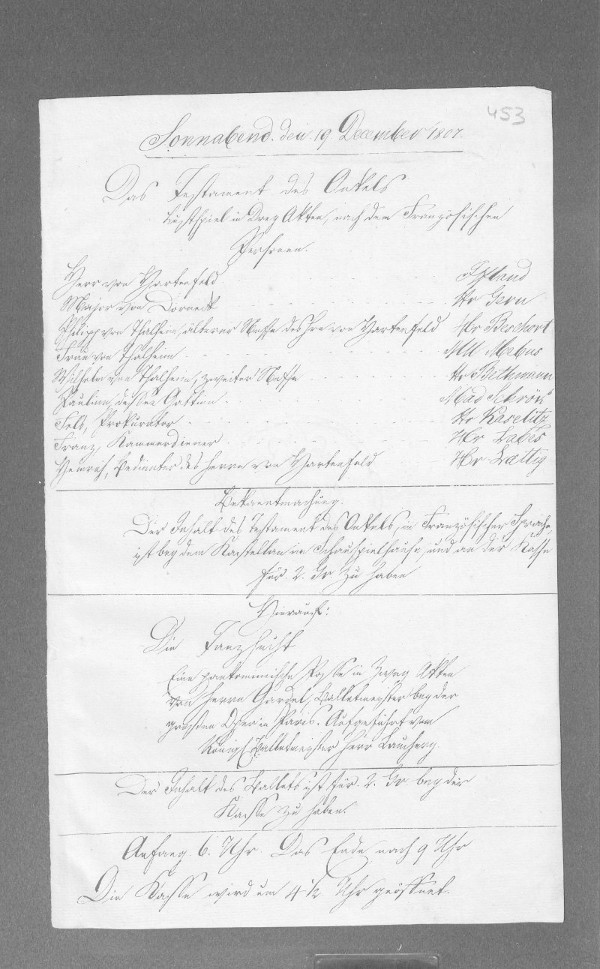 453
Sonnabend. den 19 December 1807
Das Testament des Onkels
Lustspiel in Drey Akten, nach dem Französischen
Personen.
Herr von Hartenfeld Iffland
Major von Hr Gern
Philipp von Thalheim, älterer Neffe des Hrn von Hartenfeld Hr Beschort
Frau von Thalheim Mll Mebus
Wilhelm von Thalheim, zweiter Neffe Hr Bethmann
Pauline, dessen Gattin Mad Schröck
Feld, Prokurator Hr Kaselitz
Franz, Kammerdiener Hr Labes
Heinrich, Bedienter des Herrn von Hartenfeld Hr Lattig
Bekanntmachung.
Der Inhalt des Testament des Onkels, in Französischer Sprache,
ist bey dem Kastellan im Schauspielhause, und an der Kasse
für 2. Gr zu haben
Hierauf:
Die Tanzsucht
Eine pantomimische Posse in Zwey Akten
von Herrn Gardel, Balletmeister bey der
großen Oper in Paris. Aufgeführt vom
Königl Balletmeister Herr Lauchery.
Der Inhalt des Ballets ist für 2. Gr bey der
Kasse zu haben.
Anfang 6. Uhr. Das Ende nach 9 Uhr
Die Kasse wird um 4 1/2 Uhr geöffnet.